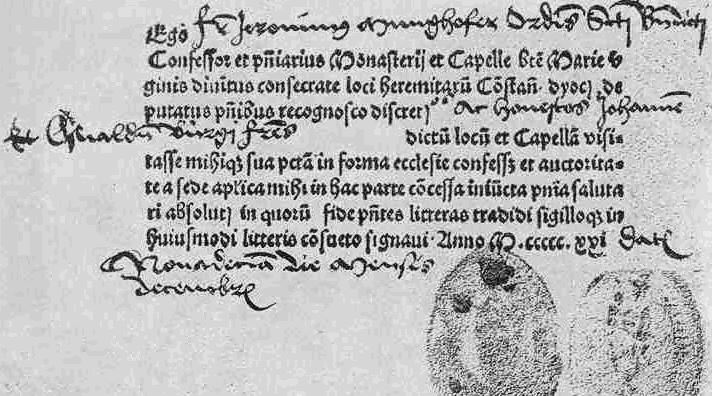 Ego fr Jeronimus Munghofer Ordis Scti Bndicti
Confessor et pñiarius Monasterij et Capelle btẽ Marie v
ginis diuinitus consecrate loci heremitarũ Cõstañ. dyocj. de
putatus pñibus recognosco discretj os ac honestos Johannẽ
et Oswaldũ Burgi frẽs dictũ locũ et Capellã visi-
tasse mihiqʒ sua pctã in forma ecclesie confessʒ et auctorita-
te a sede aplica mihi in hac parte cõcessa iniũcta pñia saluta
ri absolutj in quorũ fide pñtes litteras tradidi sigilloqʒ in
huiusmodi litteris cõsueto signaui. Anno M.ccccc.xxi Dat
Nonadecia die Mensis
decembr